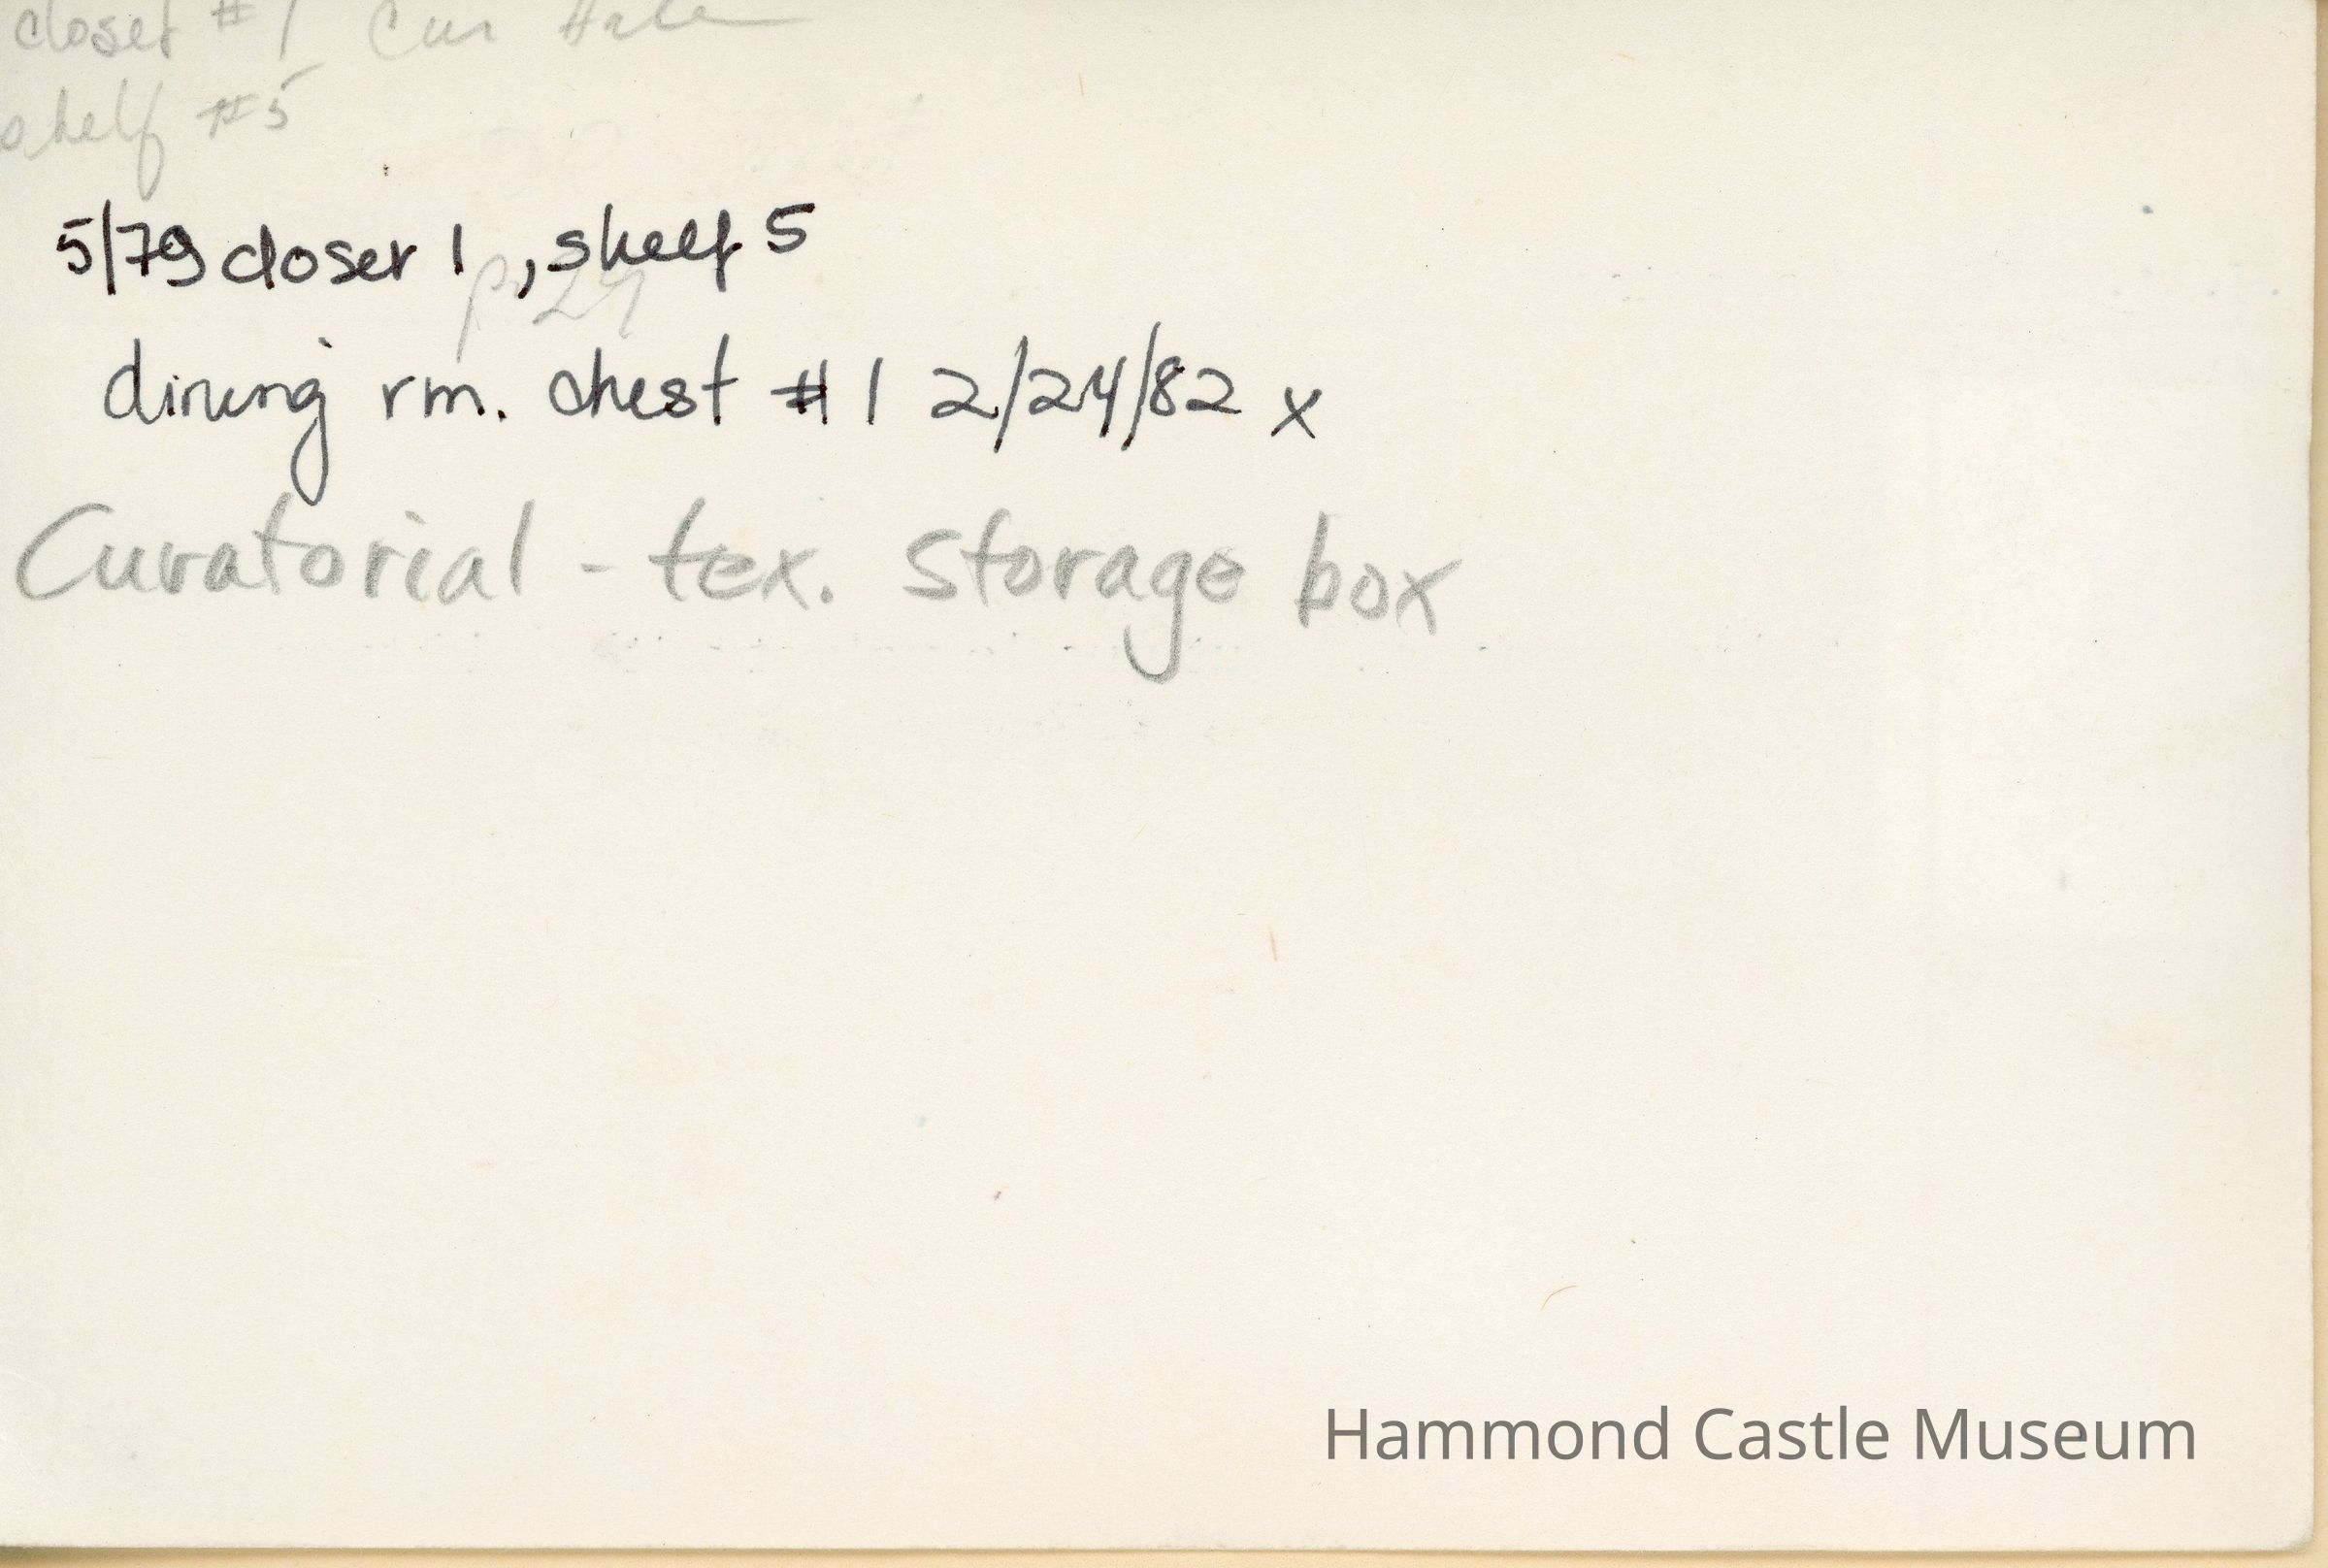 closet #1 Cur
shelf #5
5/79 closet 1, shelf 5
p. 29
dining rm. chest #1 2/24/82 x
Curatorial - tex. storage box
Hammond Castle Museum